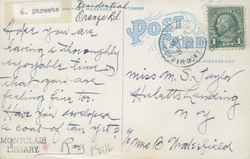 6. Streets
Residential
Orange Rd.
POST CARD
Hope you are
having a thoroughly
enjoyable time &
that you are
feeling fine too.
Have you developed
a coat of tan yet?
Roy
MONTCLAIR
LIBRARY
Miss M. S. Taylor
Huletts Landing
N.Y.